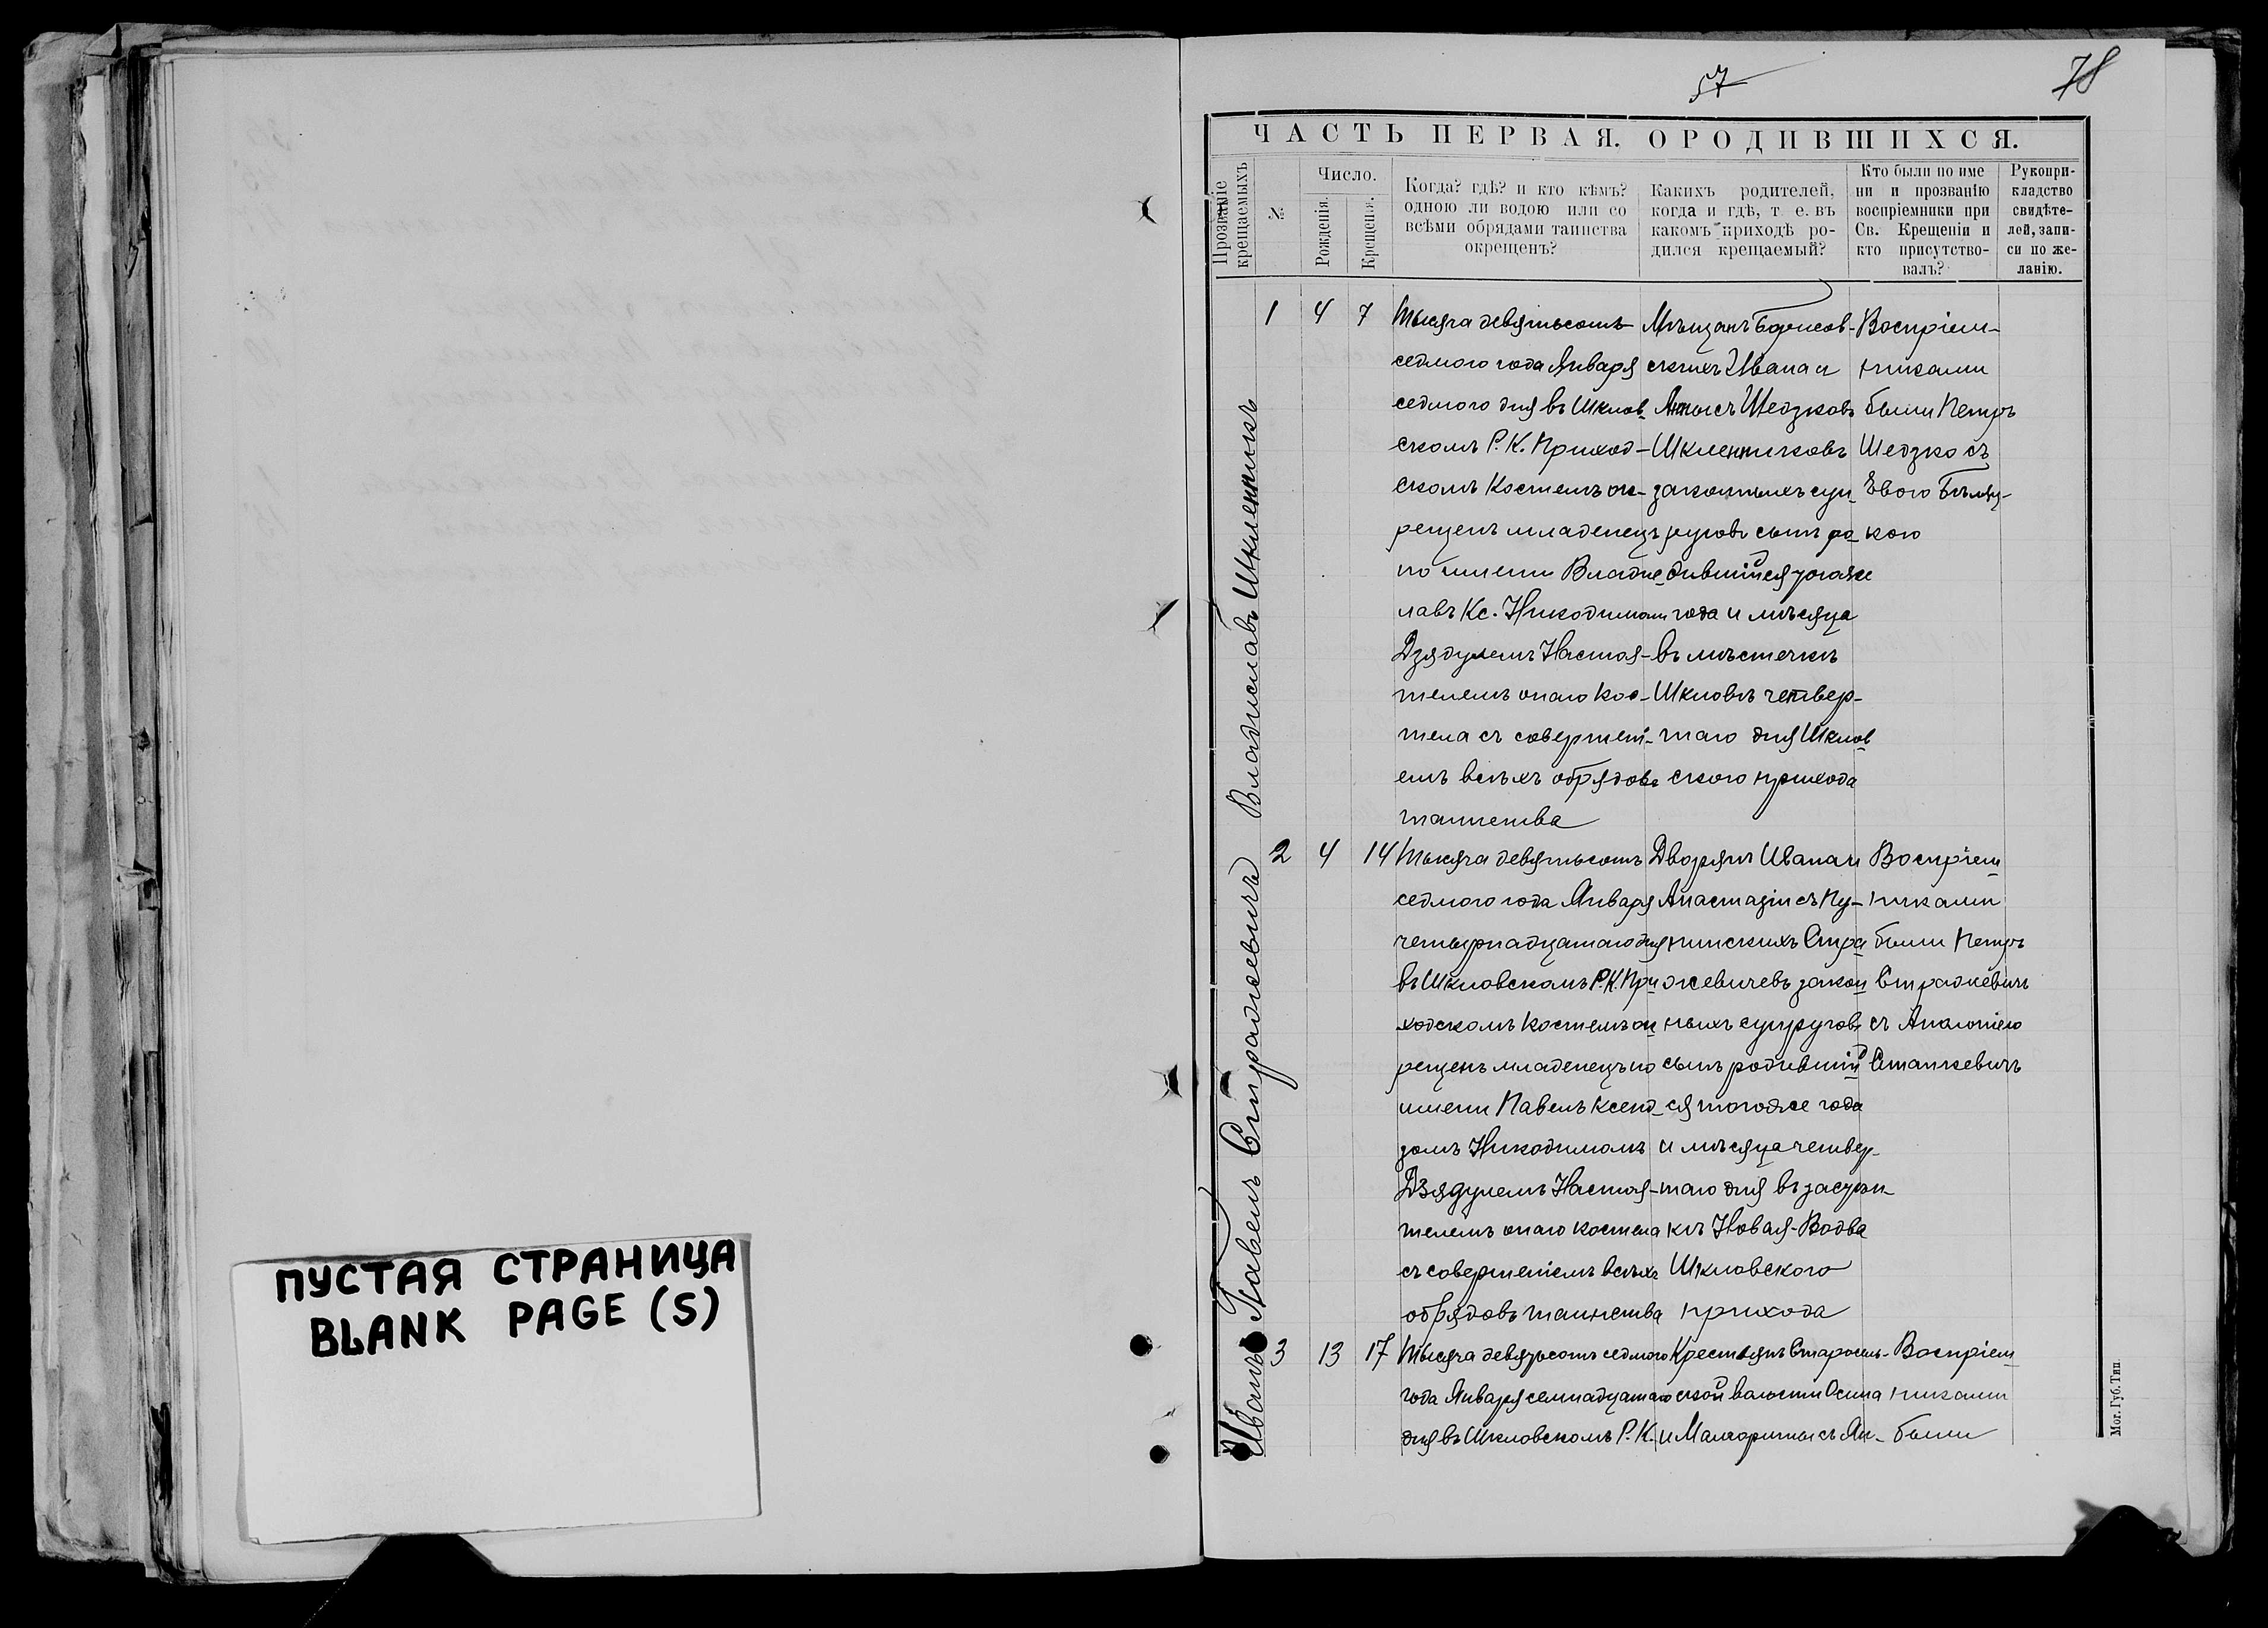 ПУСТАЯ СТРАНИЦА
BLANK PAGE (S)
57
78
ЧАСТЬ ПЕРВАЯ. О РОДИВШИХСЯ.
Прозваніе
крещаемыхъ
№
Число.
Рожденія.
Крещенія.
Когда? гдѣ? и кто кѣмъ?
одною ли водою или со
всѣми обрядами таинства
окрещенъ?
Какихъ родителей,
когда и гдѣ, т е. въ
какомъ приходѣ ро-
дился крещаемый?
Кто были по име
ни и прозванію
воспріемники при
Св. Крещеніи и
кто присутство-
валъ?
Рукопри-
кладство
свидѣте-
лей, запи-
си по же-
ланію.
Владиславъ Шкленникъ
1
4
7
Тысяча девятьсотъ
седмого года Января
седмого дня въ Шклов-
скомъ Р. К. Приход-
скомъ Костелѣ ок-
рещенъ младенецъ
по имени Владис-
лавъ Кс. Никодимом
Дзядулемъ Настоя-
телемъ онаго Кос-
тела съ совершені-
емъ всѣхъ обрядовъ
таинства
Мѣщанъ Борисов-
скихъ Ивана и
Анны съ Шедзковъ
Шкленниковъ
законныхъ суп-
руговъ сынъ ро-
дившійся того же
года и мѣсяца
въ мѣстечкѣ
Шкловѣ четвер-
таго дня Шклов
ского прихода
Воспріем-
никами
были Петръ
Шедзко съ
Евою Бѣляц-
кою
Павелъ Стражевичъ
2
4
14
Тысяча девятьсотъ
седмого года Января
четырнадцатаго дня
въ Шкловскомъ Р. К. При
ходскомъ Костелѣ ок
рещенъ младенецъ по
имени Павелъ Ксенд-
зомъ Никодимомъ
Дзядулемъ Настоя-
телемъ онаго костела
съ совершеніемъ всѣхъ
обрядовъ таинства
Дворянъ Ивана и
Анастазіи съ Пу-
нинскихъ Стра
жевичевъ закон
ныхъ супруговъ
сынъ родившій
ся тогоже года
и мѣсяца четвер-
таго дня въ застѣн-
кѣ Новая-Водва
Шкловского
прихода
Воспріем
никами
были Петръ
Стражевичъ
съ Аполоніею
Станкевичъ
Иванъ
3
13
17
Тысяча девятьсотъ седмого
года Января семнадцатаго
дня въ Шкловскомъ Р. К.
Крестьянъ Старосель-
ской волости Осипа
и Малгориты съ Ян-
Воспріем
никами
были
Мог. Губ. Тип.